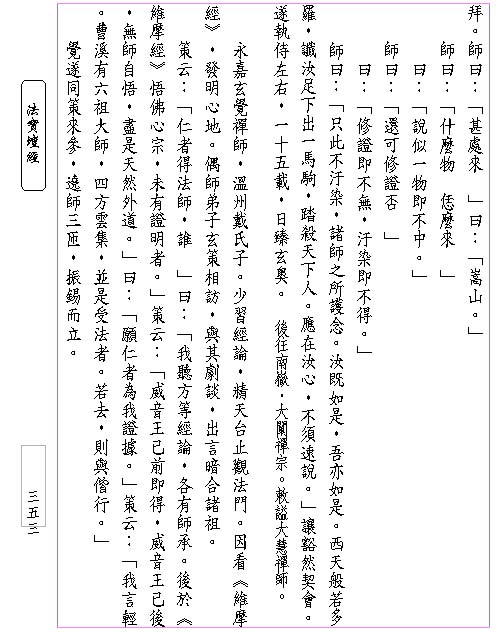 拜。師曰：「甚處來　」曰：「嵩山。」
師曰：「什麼物　恁麼來　」
曰：「說似一物即不中。」
師曰：「還可修證否　」
曰：「修證即不無，汙染即不得。」
師曰：「只此不汙染，諸師之所護念。汝既如是，吾亦如是。西天般若多
羅，讖汝足下出一馬駒，踏殺天下人。應在汝心，不須速說。」讓豁然契會。
遂執侍左右，一十五載，日臻玄奧。　後往南嶽，大闡禪宗。敕謚大慧禪師。
永嘉玄覺禪師，溫州戴氏子。少習經論，精天台止觀法門。因看《維摩
經》，發明心地。偶師弟子玄策相訪，與其劇談，出言暗合諸祖。
策云：「仁者得法師，誰　」曰：「我聽方等經論，各有師承。後於《
維摩經》悟佛心宗，未有證明者。」策云：「威音王已前即得，威音王已後
，無師自悟，盡是天然外道。」曰：「願仁者為我證據。」策云：「我言輕
。曹溪有六祖大師，四方雲集，並是受法者。若去，則與偕行。」
覺遂同策來參，遶師三匝，振錫而立。
法寶壇經
三五三